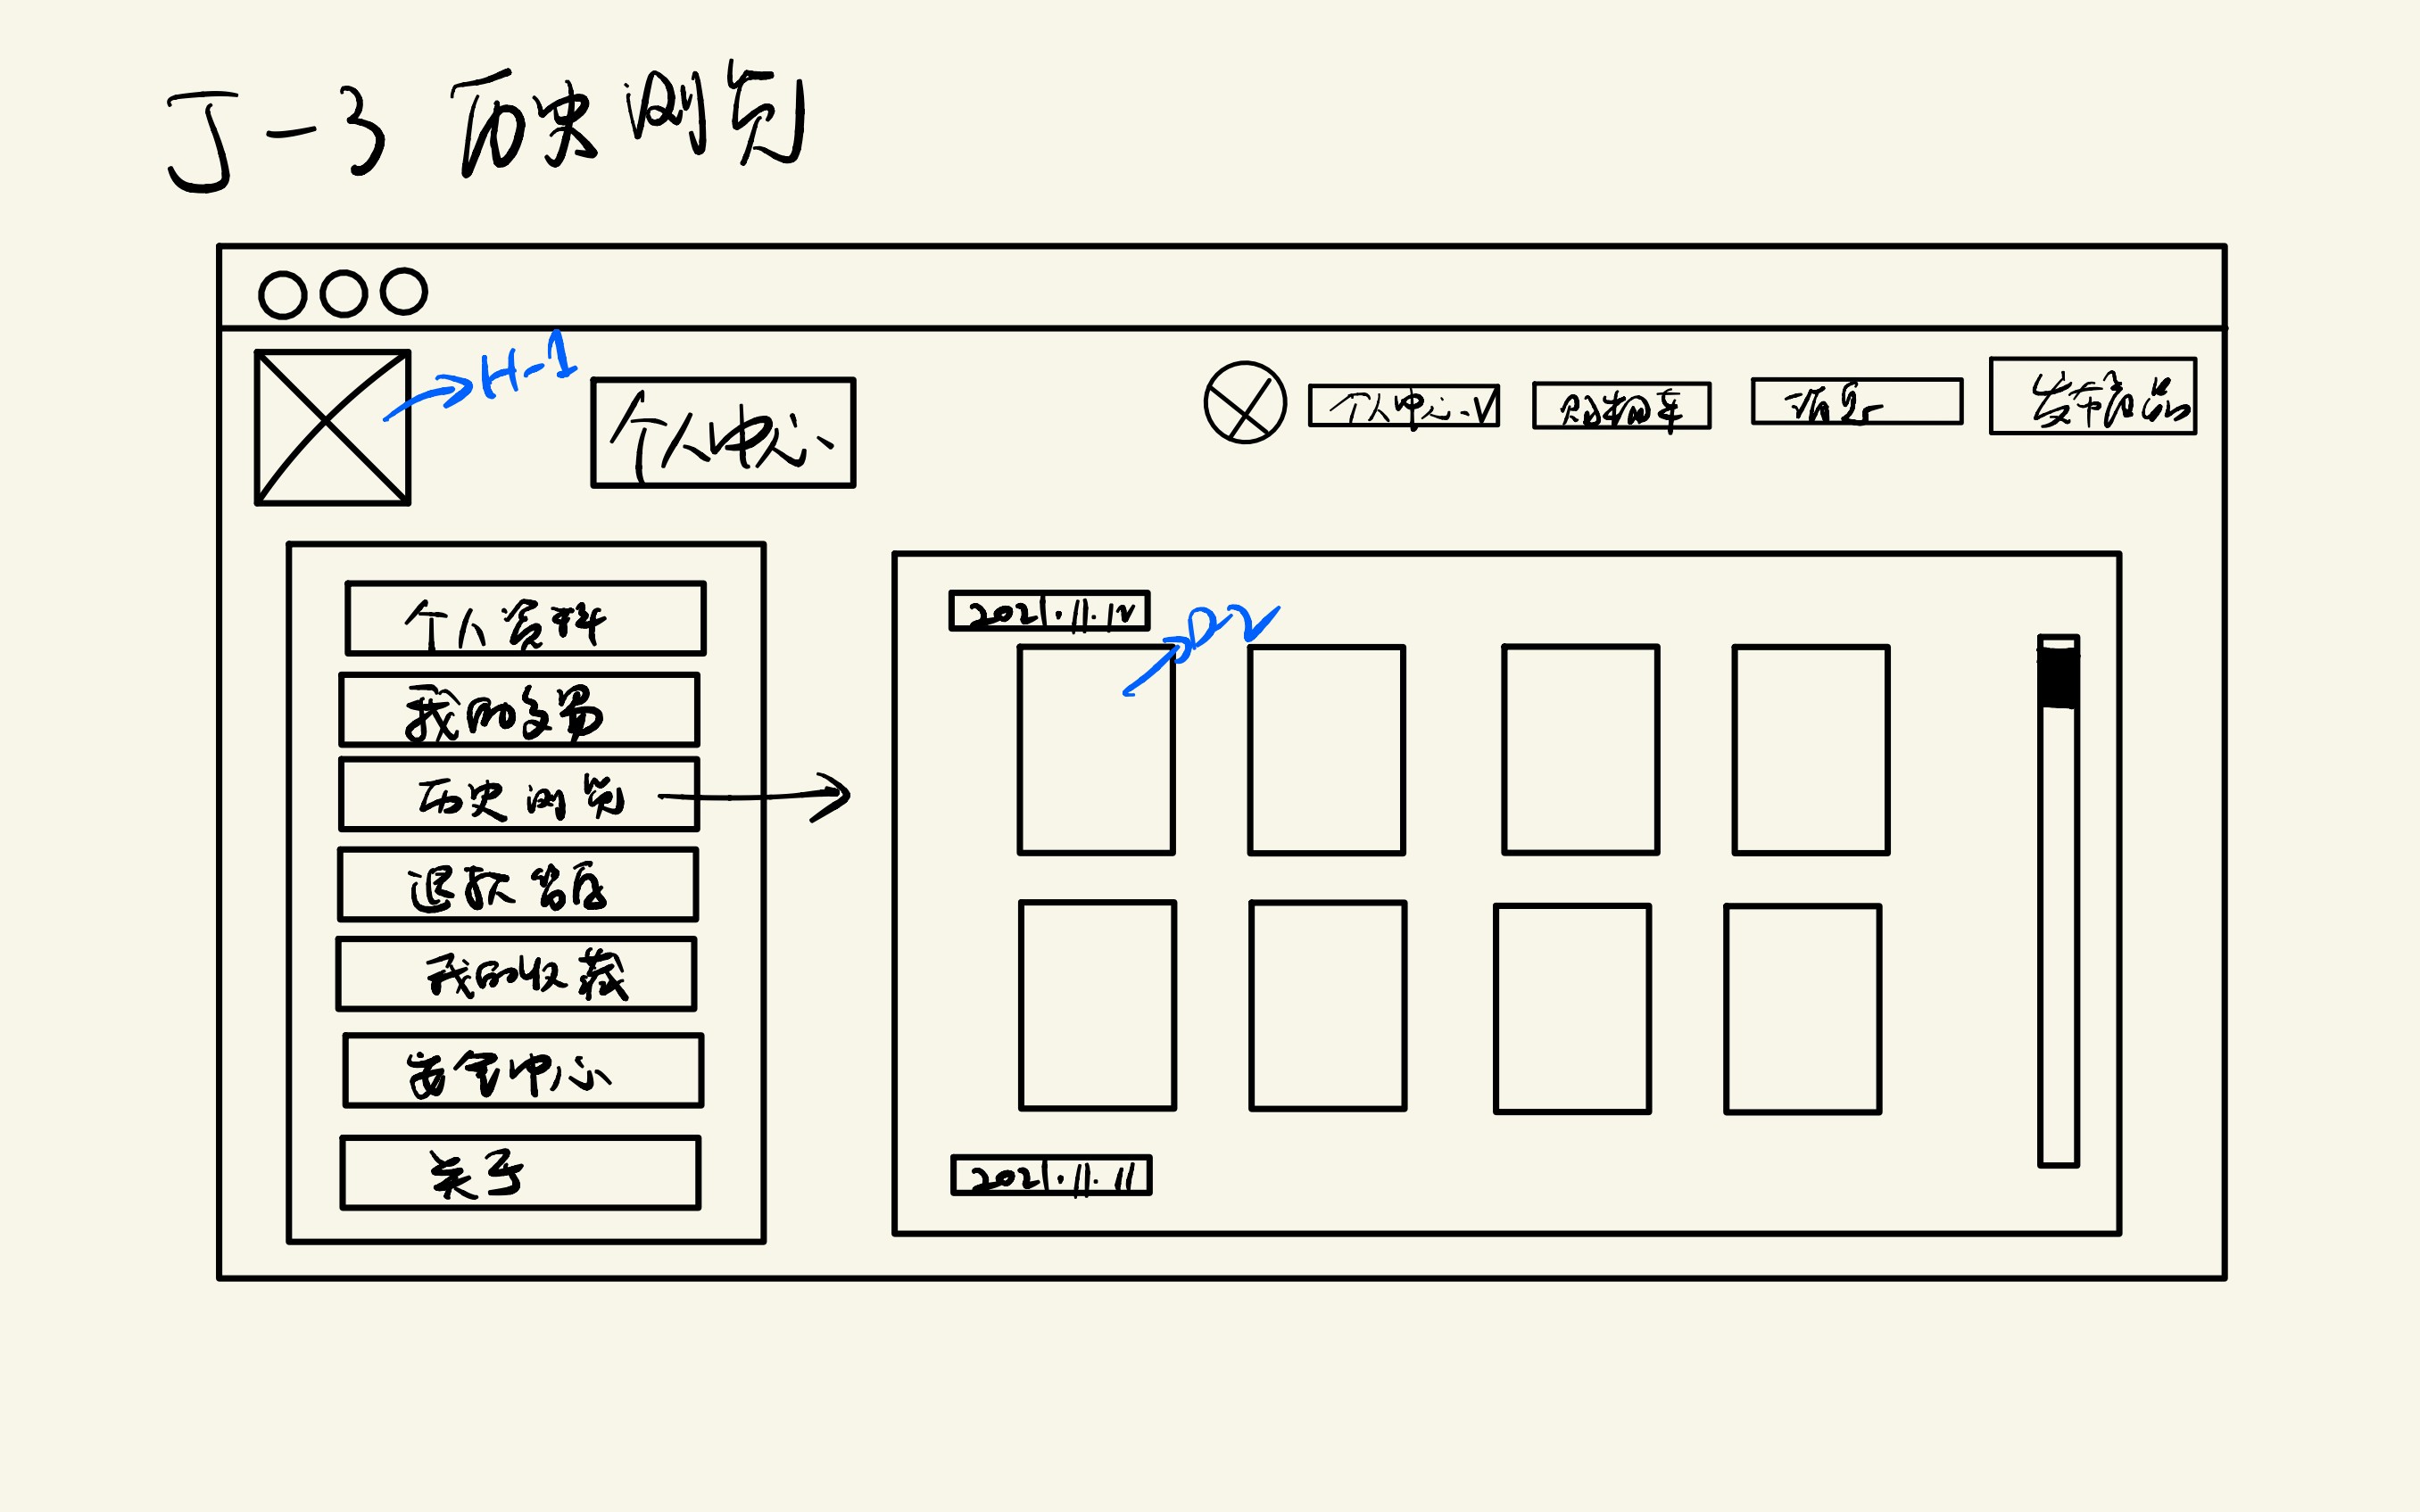 J-3 历史浏览
H-1
个人中心
个人中心 V
购物车
消息
发布商品
个人资料
我的交易
历史浏览
退款售后
我的收藏
客舍中心
关于
2021.11.12
D-2
2021.11.11